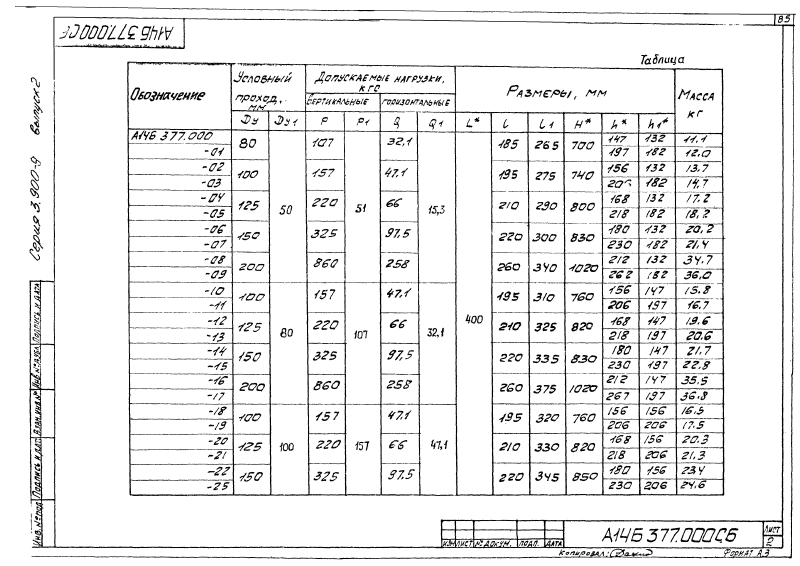 85
А14Б 377.000СБ
Серия 3.900-9 выпуск 2
Таблица
Обозначение | Условный проход, мм | Допускаемые нагрузки, кгс | Размеры, мм | Масса кг
вертикальные | горизонтальные
Dу | Dу1 | P | P1 | Q | Q1 | L* | l | l1 | H* | h* | h1*
А14Б 377.000 | 80 | 50 | 107 | 51 | 32,1 | 15,3 | 400 | 185 | 265 | 700 | 147 | 132 | 11.1
-01 | 197 | 182 | 12.0
-02 | 100 | 157 | 47.1 | 195 | 275 | 740 | 156 | 132 | 13.7
-03 | 206 | 182 | 14,7
-04 | 125 | 220 | 66 | 210 | 290 | 800 | 168 | 132 | 17.2
-05 | 218 | 182 | 18,2
-06 | 150 | 325 | 97.5 | 220 | 300 | 830 | 180 | 132 | 20,2
-07 | 230 | 182 | 21,4
-08 | 200 | 860 | 258 | 260 | 340 | 1020 | 212 | 132 | 34.7
-09 | 262 | 182 | 36,0
-10 | 100 | 80 | 157 | 107 | 47.1 | 32,1 | 195 | 310 | 760 | 156 | 147 | 15.8
-11 | 206 | 197 | 16.7
-12 | 125 | 220 | 66 | 210 | 325 | 820 | 168 | 147 | 19.6
-13 | 218 | 197 | 20.6
-14 | 150 | 325 | 97,5 | 220 | 335 | 830 | 180 | 147 | 21.7
-15 | 230 | 197 | 22.8
-16 | 200 | 860 | 258 | 260 | 375 | 1020 | 212 | 147 | 35.5
-17 | 267 | 197 | 36.8
-18 | 100 | 100 | 157 | 157 | 47.1 | 47,1 | 195 | 320 | 760 | 156 | 156 | 16.5
-19 | 206 | 206 | 17.5
-20 | 125 | 220 | 66 | 210 | 330 | 820 | 168 | 156 | 20.3
-21 | 218 | 206 | 21,3
-22 | 150 | 325 | 97.5 | 220 | 345 | 850 | 180 | 156 | 23.4
-23 | 230 | 206 | 24,6
Инв. № подл. Подпись и дата Взам. инв. № Инв. № дубл. Подпись и дата
Изм Лист № докум. Подп. Дата
А14Б 377.000СБ
Лист
2
Копировал:
Формат А3